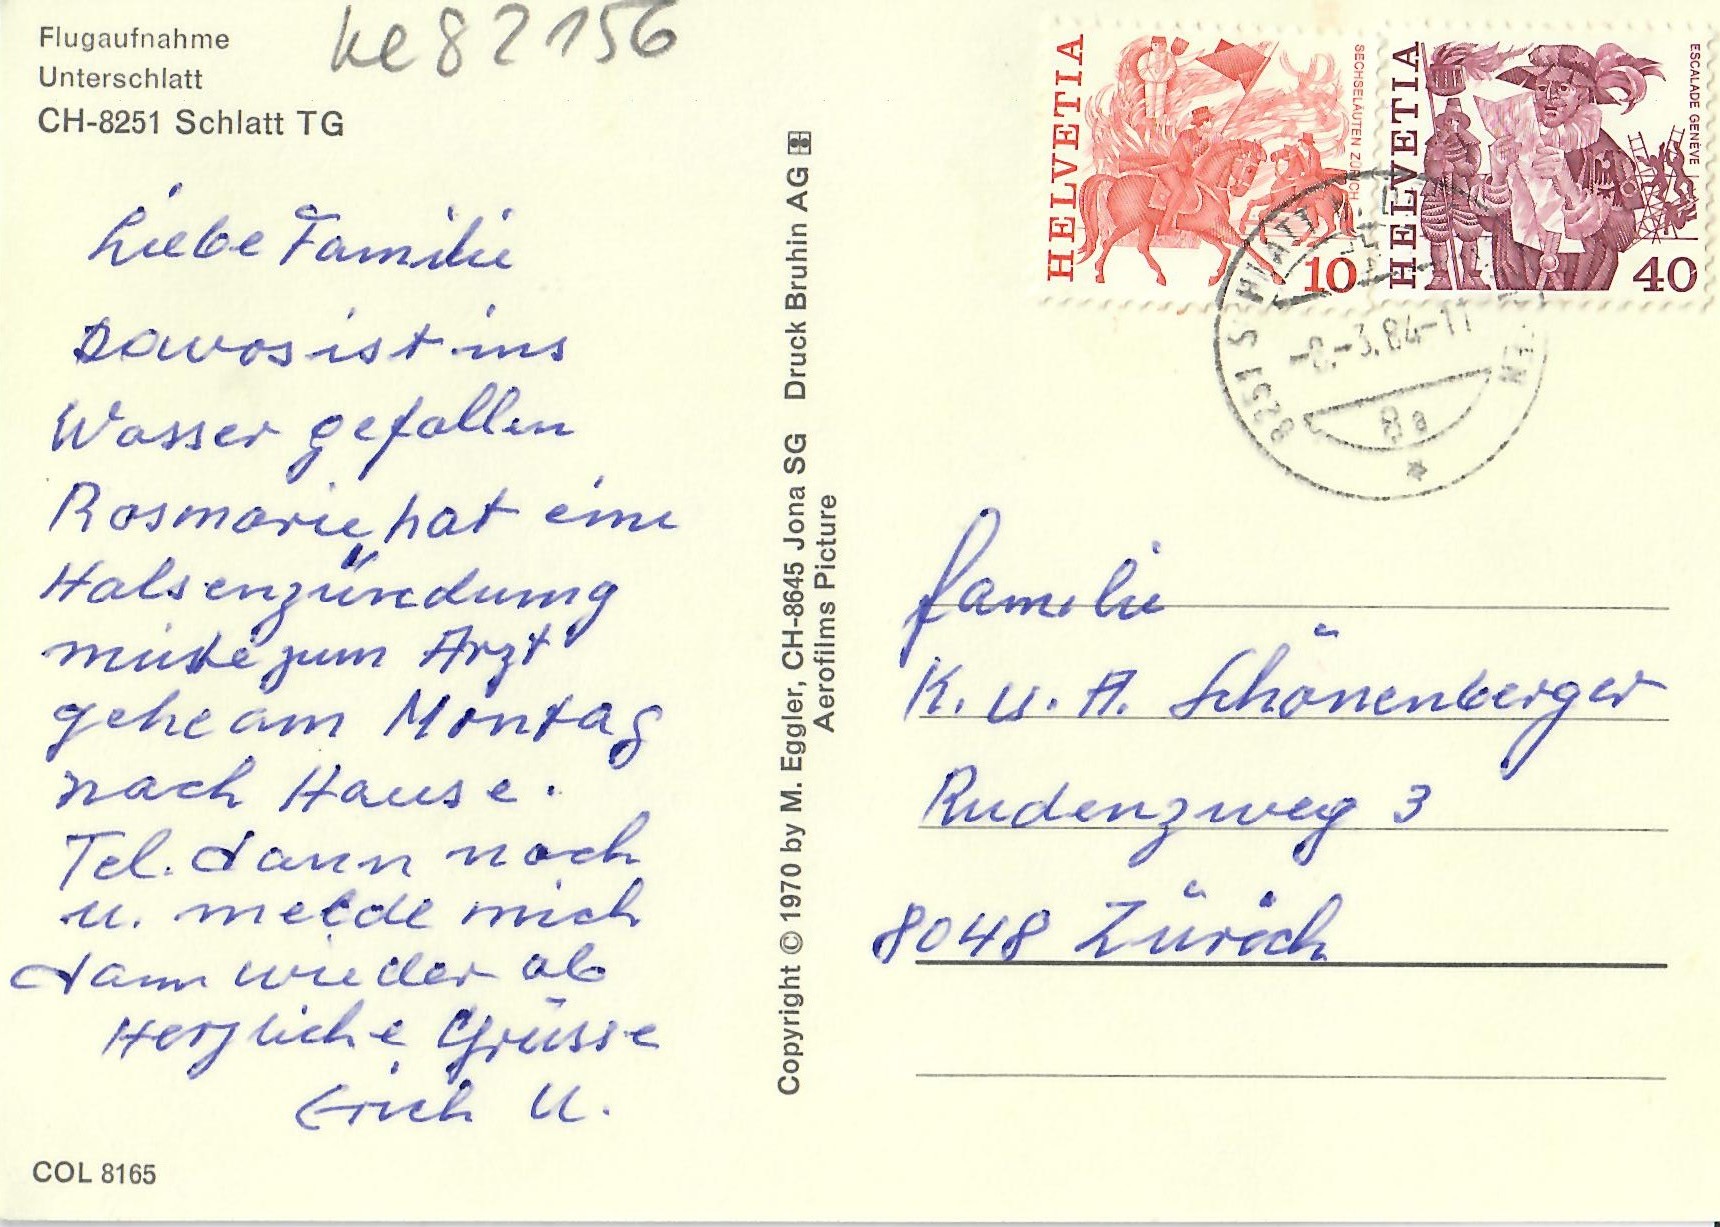 Flugaufnahme
Unterschlatt
CH-8251 Schlatt TG
ke 82156
Liebe Familie
Davos ist ins
Wasser gefallen
Rosmarie hat eine
Halsenzündung
müste zum Arzt
gehe am Montag
nach Hause.
Tel. dann noch
u. melde mich
dann wieder ab
Herzliche Grüsse
Erich U.
COL 8165
Copyright © 1970 by M. Eggler, CH-8645 Jona SG Druck Bruhin AG
Aerofilms Picture
HELVETIA
SECHSELÄUTEN ZÜRICH
10
HELVETIA
ESCALADE GENÈVE
40
8251 SCHLATT
-3.84-11
8a
Familie
K. u. A. Schönenberger
Rudenzweg 3
8048 Zürich